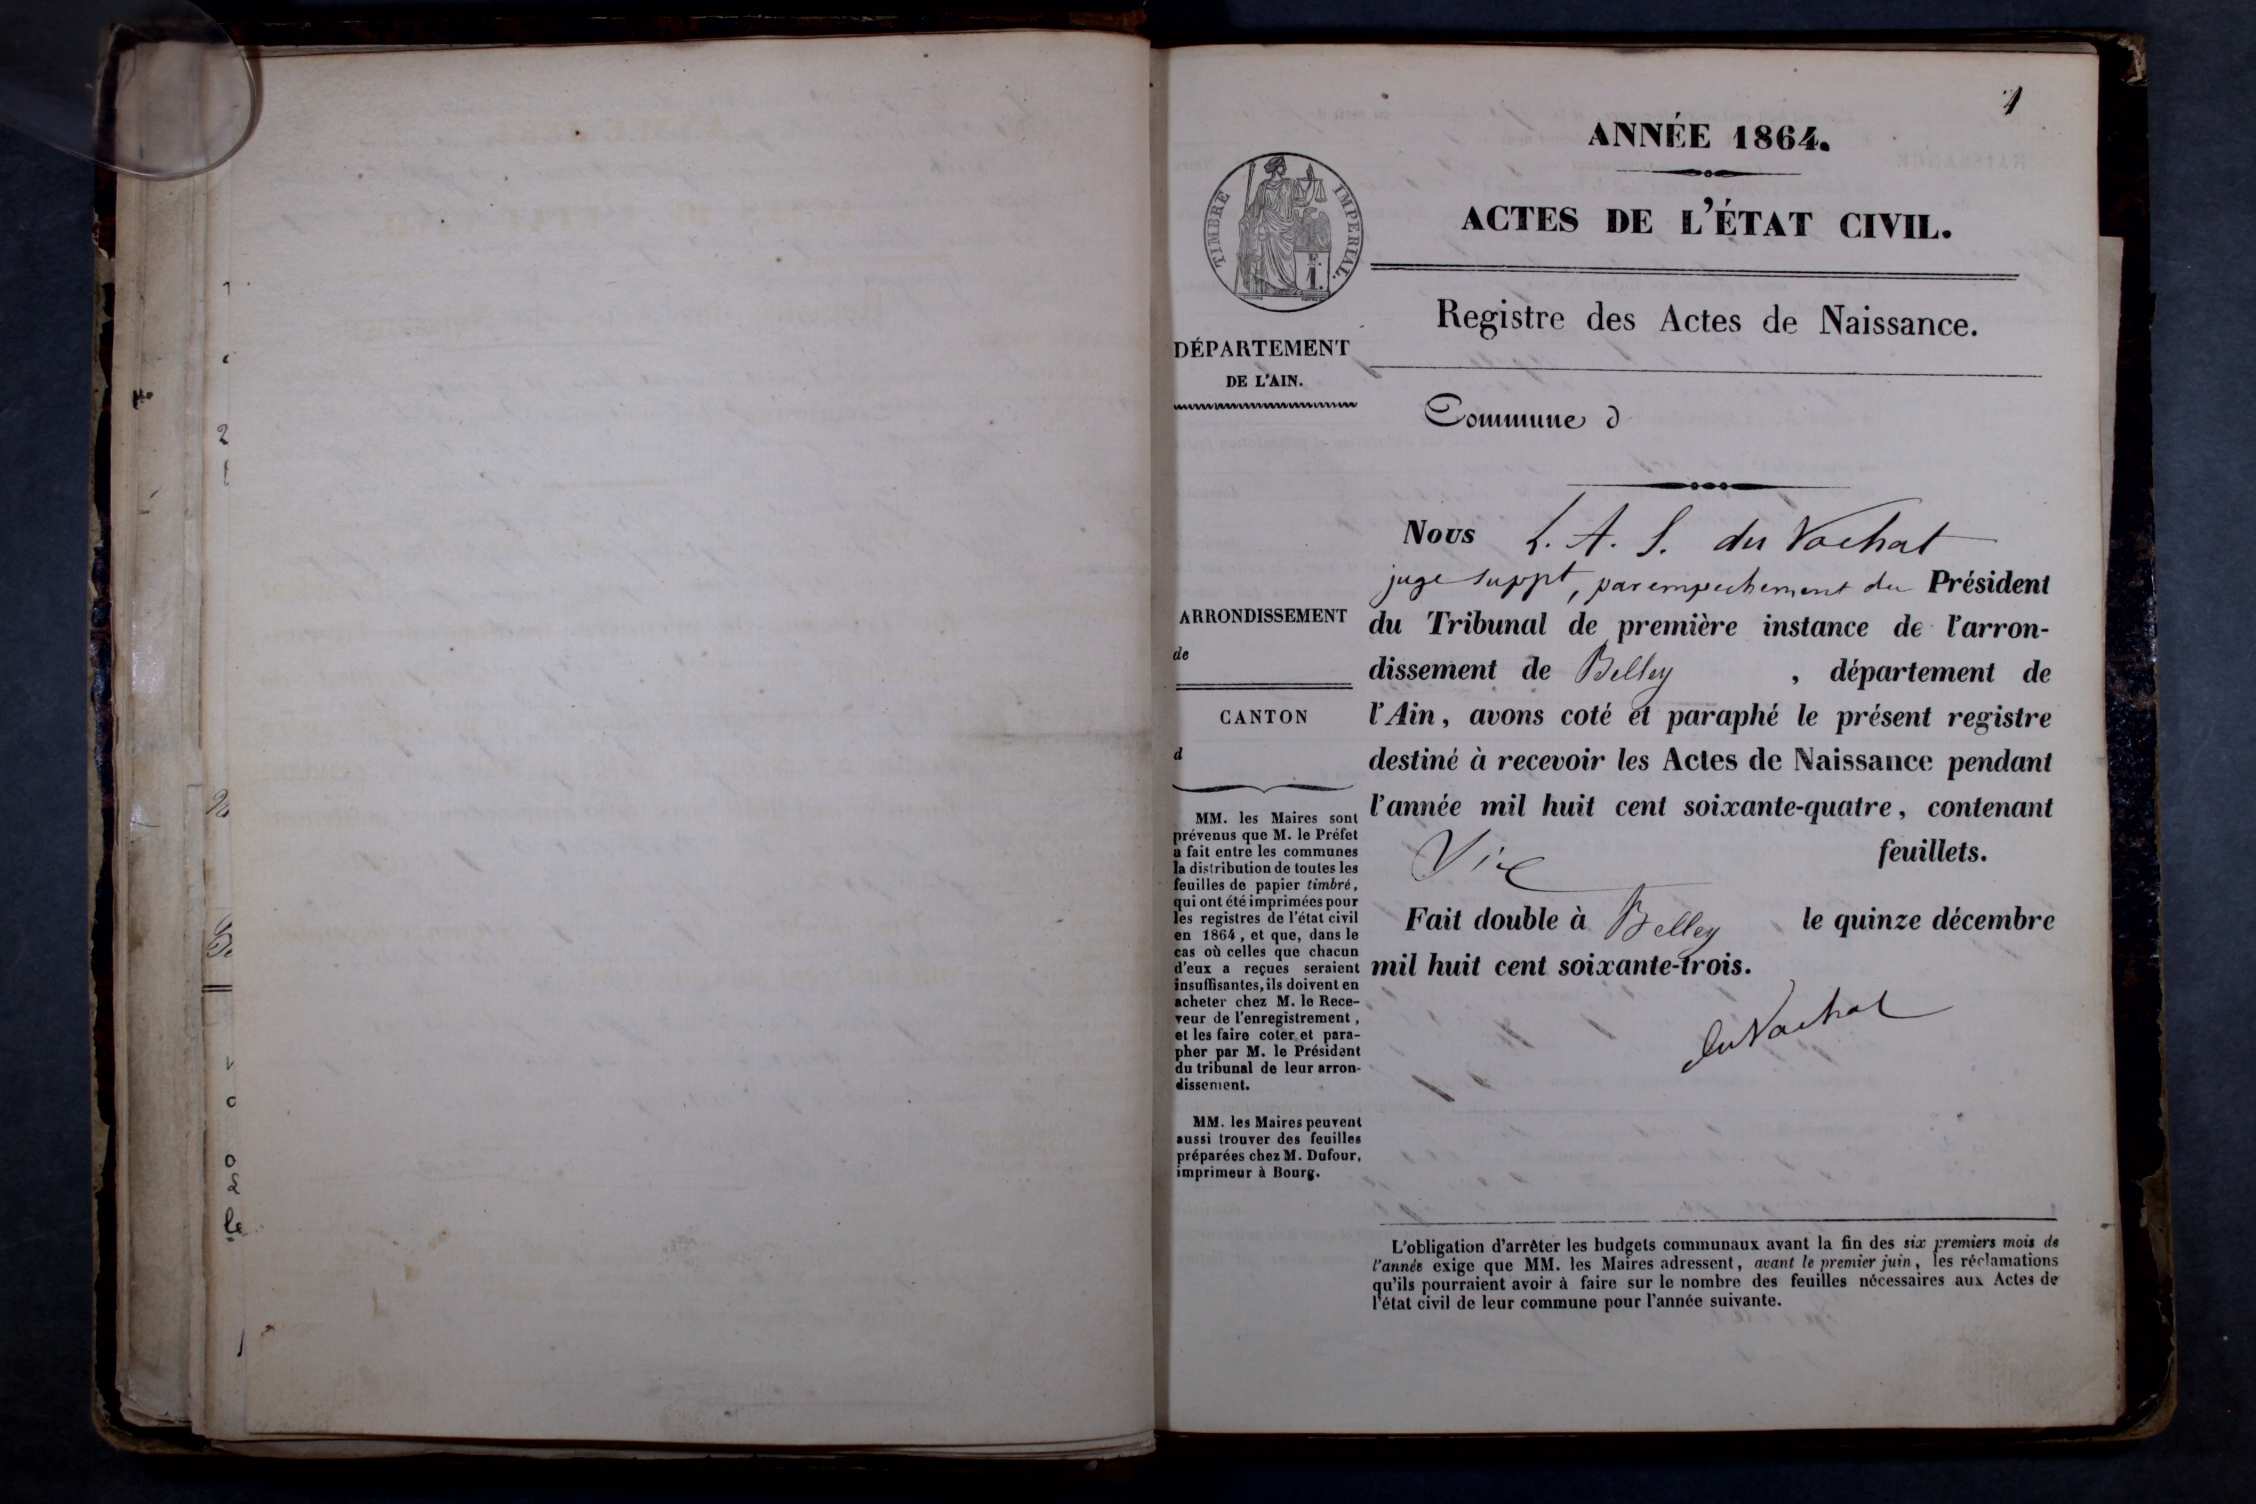 1
ANNÉE 1864.
ACTES DE L'ÉTAT CIVIL.
Registre des Actes de Naissance.
TIMBRE IMPERIAL.
1.
DÉPARTEMENT
DE L'AIN.
Commune d
ARRONDISSEMENT
de
CANTON
d
MM. les Maires sont
prévenus que M. le Préfet
a fait entre les communes
la distribution de toutes les
feuilles de papier timbré,
qui ont été imprimées pour
les registres de l'état civil
en 1864, et que, dans le
cas où celles que chacun
d'eux a reçues seraient
insuffisantes, ils doivent en
acheter chez M. le Rece-
veur de l'enregistrement,
et les faire coter et para-
pher par M. le Président
du tribunal de leur arron-
dissement.
MM. les Maires peuvent
aussi trouver des feuilles
préparées chez M. Dufour,
imprimeur à Bourg.
Nous L. A. S. du Vachat
juge suppt, par empechement du Président
du Tribunal de première instance de l'arron-
dissement de Belley , département de
l'Ain, avons coté et paraphé le présent registre
destiné à recevoir les Actes de Naissance pendant
l'année mil huit cent soixante-quatre, contenant
feuillets.
Fait double à Belley le quinze décembre
mil huit cent soixante-trois.
du Vachat
L'obligation d'arrêter les budgets communaux avant la fin des six premiers mois de
l'année exige que MM. les Maires adressent, avant le premier juin, les réclamations
qu'ils pourraient avoir à faire sur le nombre des feuilles nécessaires aux Actes de
l'état civil de leur commune pour l'année suivante.